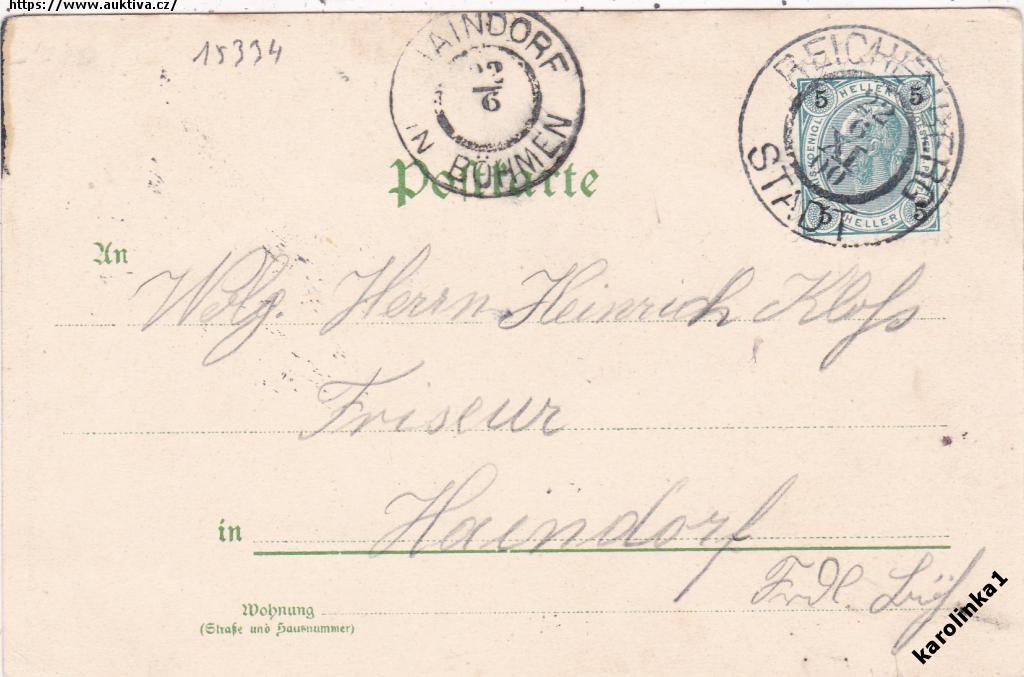 https://www.auktiva.cz/
15334
HAINDORF
22/6
IN BÖHMEN
REICHENBERG
22
6
STADT
5 HELLER 5
5 HELLER 5
Postkarte
An
Herrn Heinrich Kloss
Friseur
in Haindorf
Frdl.
Wohnung
(Straße und Hausnummer)
karolinka1